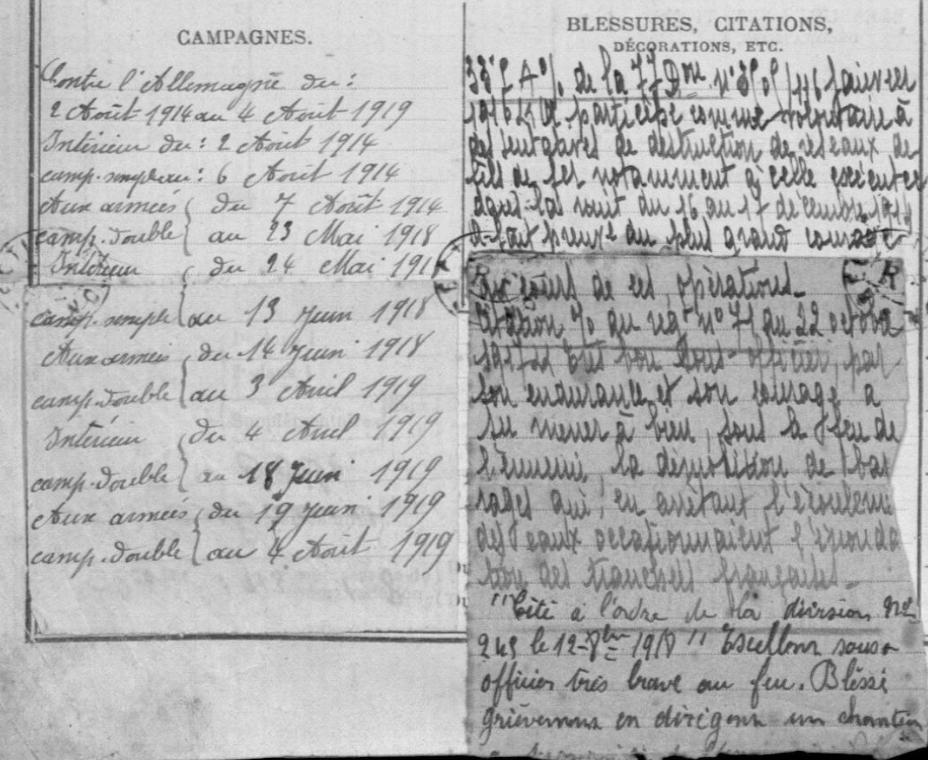 CAMPAGNES.
Contre l'Allemagne du :
2 Août 1914 au 4 Août 1919
Intérieur du : 2 Août 1914
camp. simple au : 6 Août 1914
Aux armées du 7 Août 1914
camp. double au 23 Mai 1918
Intérieur du 24 Mai 1918
camp. simple au 13 Juin 1918
Aux armées du 14 Juin 1918
camp. double au 3 Avril 1919
Intérieur du 4 Avril 1919
camp. double au 18 Juin 1919
Aux armées du 19 Juin 1919
camp. double au 4 Août 1919
BLESSURES, CITATIONS,
DÉCORATIONS, ETC.
de la 77 Don
participé comme volontaire à
des de destruction de réseaux de
fils de fer notamment à celle exécutée
du 16 au 17 décembre
a fait preuve du plus grand courage
au cours de ces opérations.
Citation au 22 octobre
très bon Sous-officier, par
son endurance et son courage a
su mener à bien, sous le feu de
l'ennemi, la démolition de bar
rages qui, en arrêtant l'écoulement
des eaux occasionnaient l'inonda
tion des tranchées françaises.
"Cité à l'ordre de la division No
249 le 12-8bre 1918 " Excellent sous-
officier très brave au feu. Blessé
grièvement en dirigeant un chantier